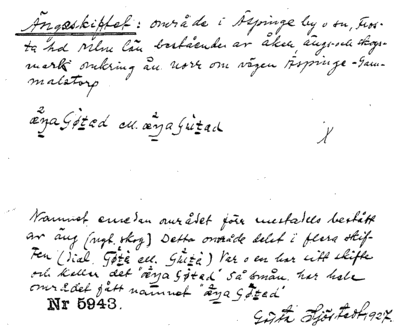 Ängaskiftet: område i Äspinge by o sn, Fros-
ta hd Mlm. län bestående av åker, äng- och skogs-
mark omkring ån norr om vägen Äspinge - Gam-
malstorp
æŋa Gøtəd ell. æŋa Gütəd
X
Namnet emedan området förr mestadels bestått
av äng (ngt. skog) Detta område delat i flera skif-
ten (dial. Gøtə ell. Gütə) Var o en har sitt skifte
och kallar det "æŋa Gøtəd" så smån. har hela
området fått namnet "æŋa Gøtəd"
Nr 5943.
Gösta Sjöstedt, 1927.